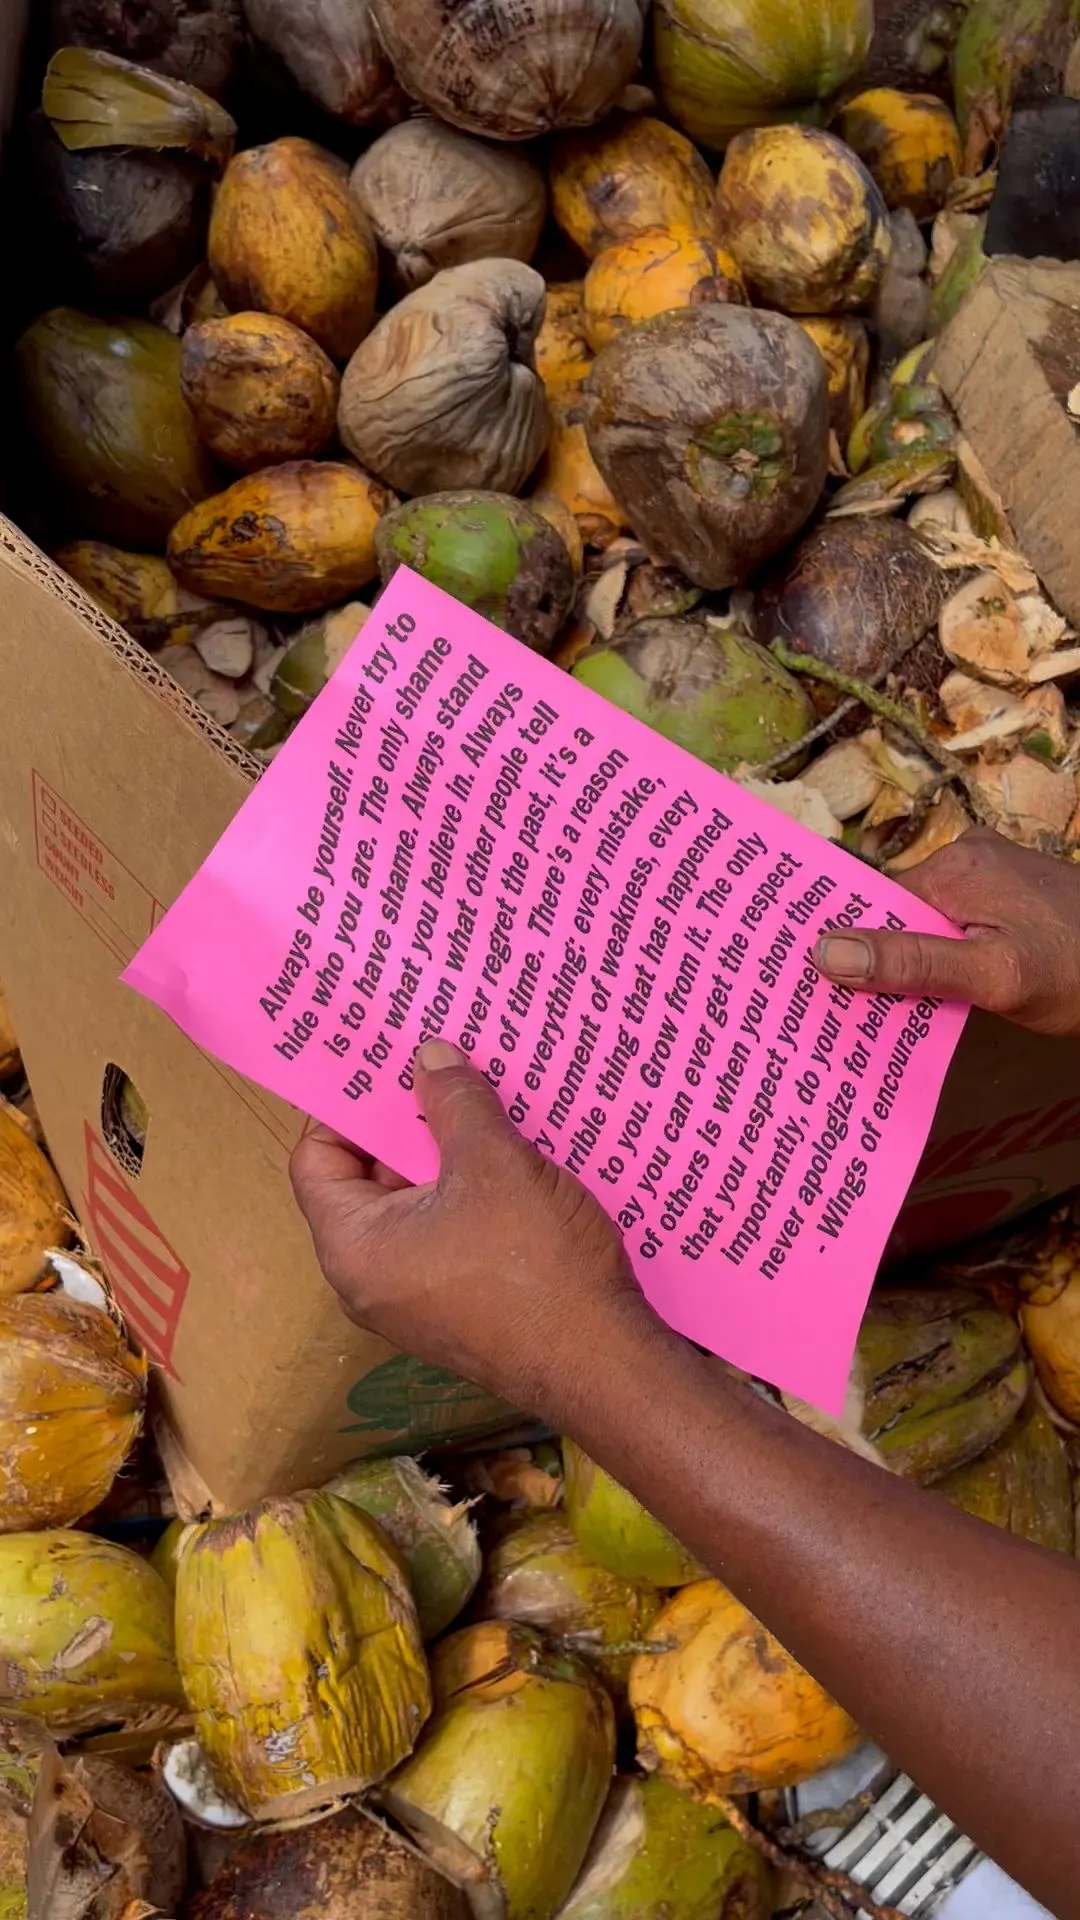 Always be yourself. Never try to
hide who you are. The only shame
is to have shame. Always stand
up for what you believe in. Always
what other people tell
ever regret the past, it's a
of time. There's a reason
every mistake,
moment of weakness, every
thing that has happened
to you. Grow from it. The only
you can ever get the respect
of others is when you show them
that you respect Most
importantly, do your
never apologize for
- Wings of
SEEDED
SEEDLESS
COUNT
WEIGHT